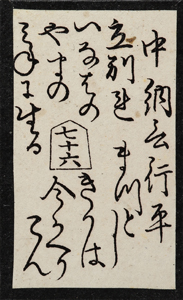 中納言行平
立別れ
いなはの
やまの
みねに生る
まつとし
きかは
今かへり
こん
七十六